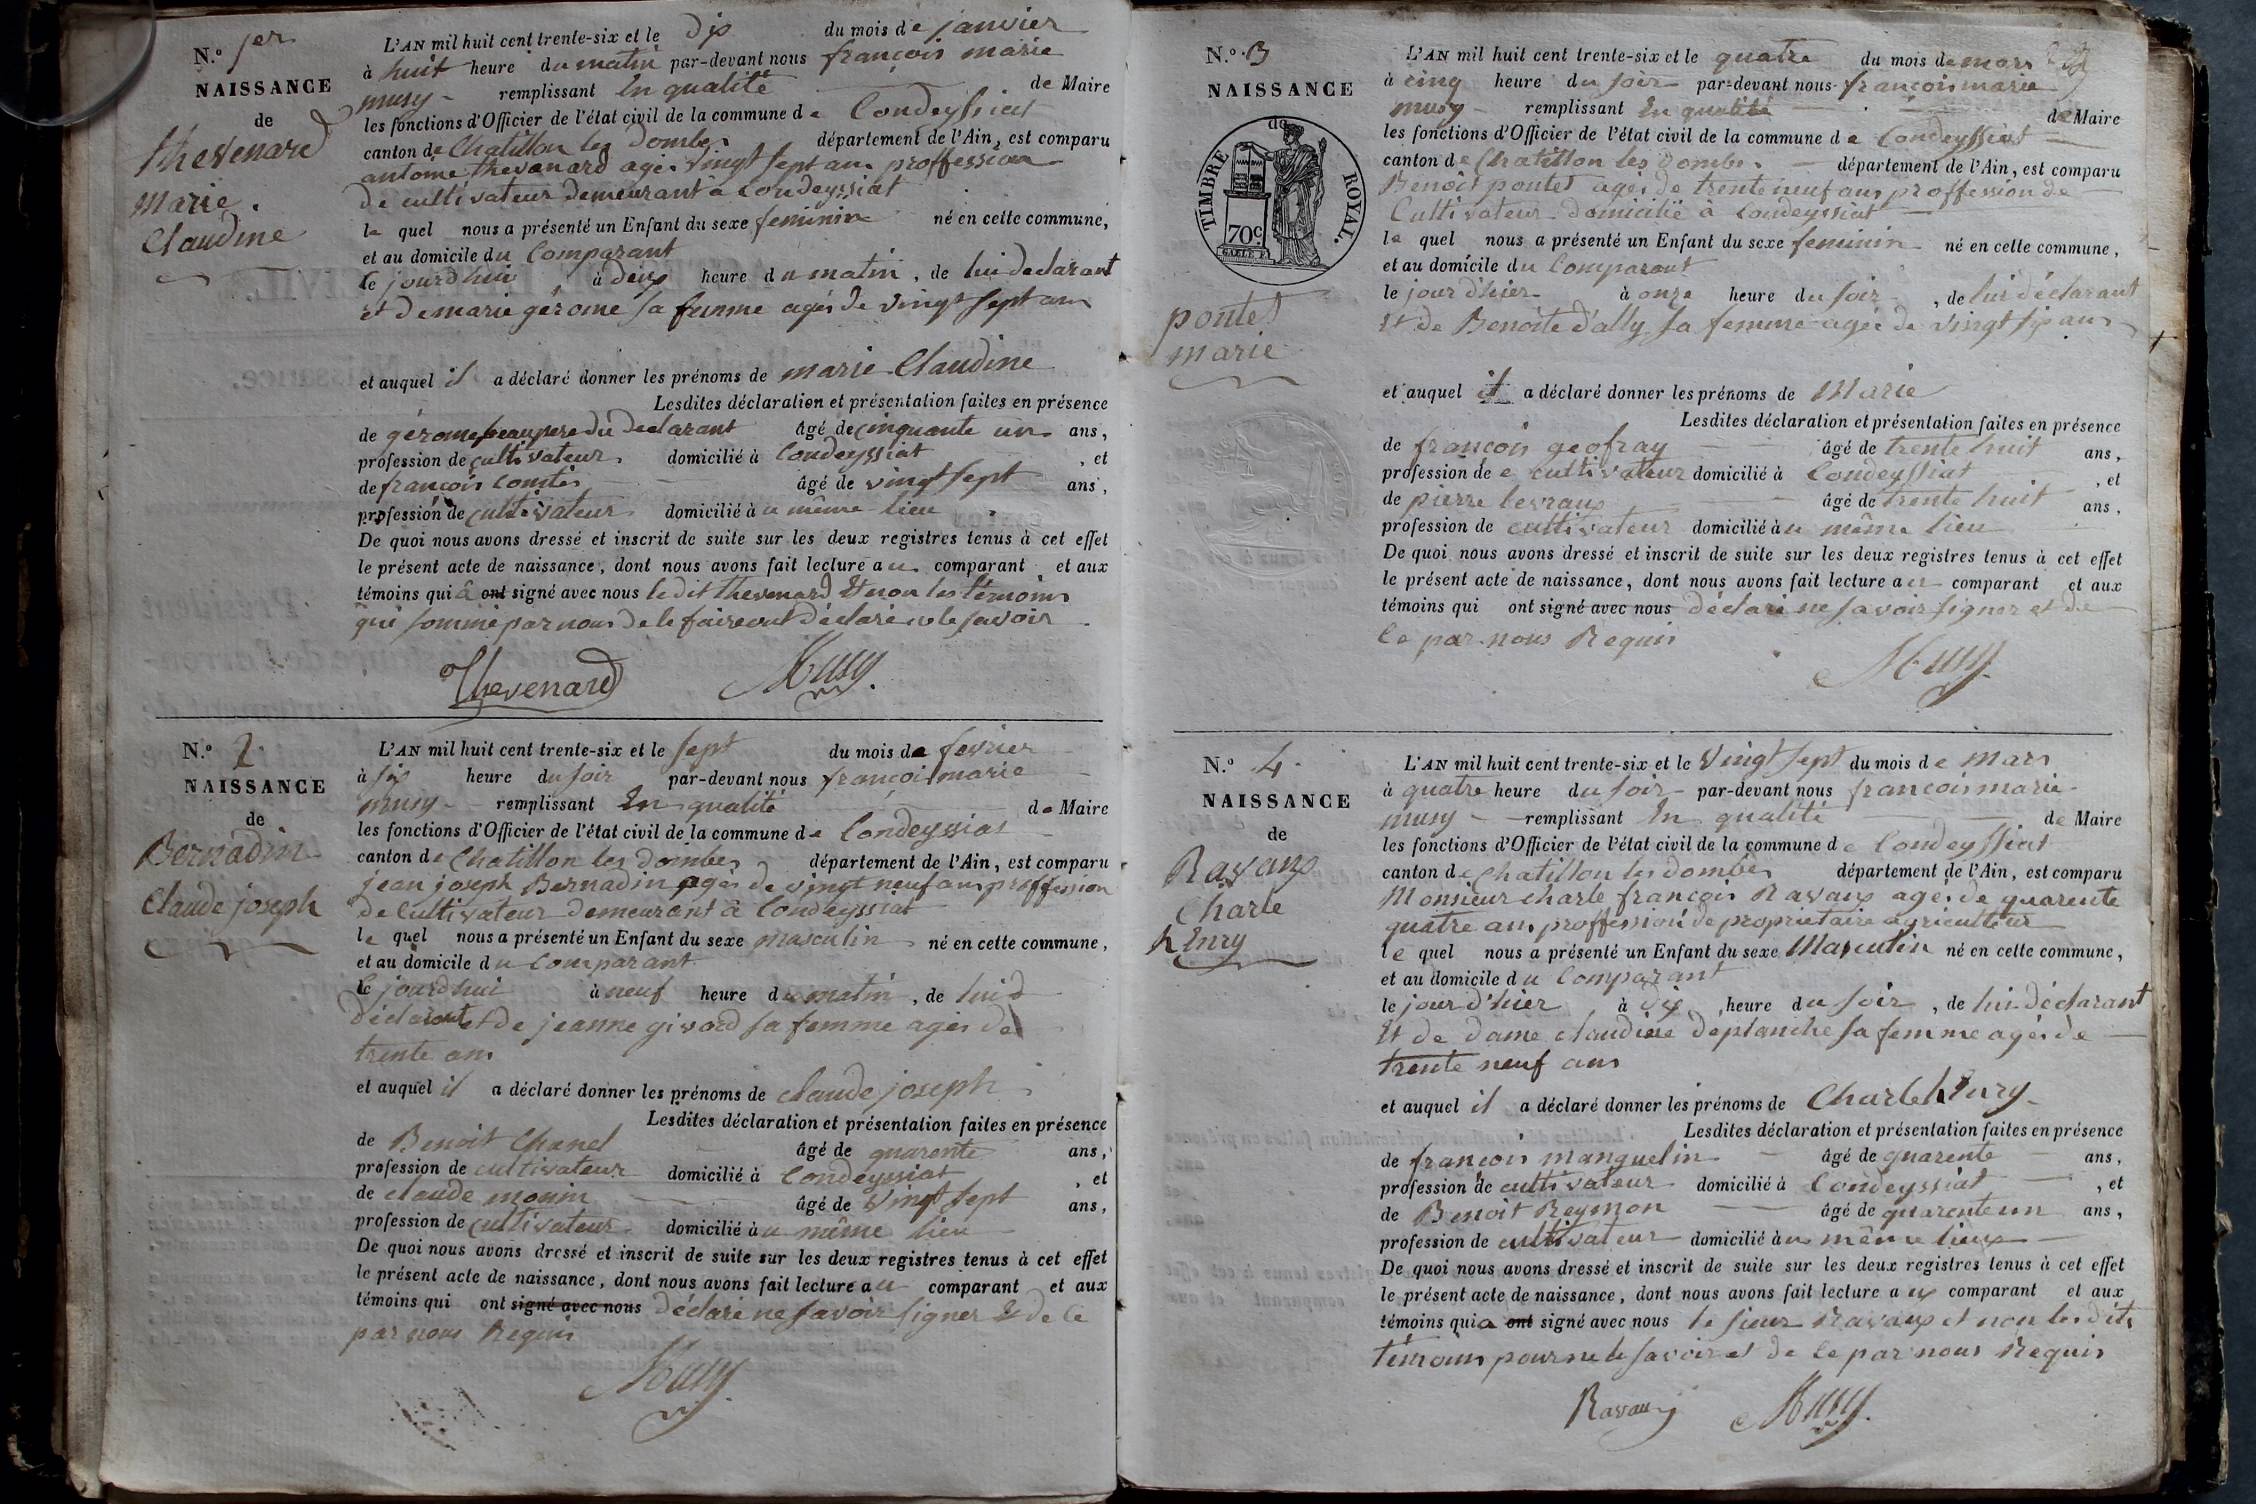 N.º 1er
NAISSANCE
de
thevenard
marie
Claudine
L'AN mil huit cent trente-six et le dix du mois de janvier
à huit heure du matin par-devant nous françois marie
musy remplissant En qualité de Maire
les fonctions d'Officier de l'état civil de la commune de Condeyssiat
canton de Chatillon les dombes département de l'Ain, est comparu
antoine thevenard agés vingt sept ans proffession
de cultivateur demeurant à Condeyssiat
le quel nous a présenté un Enfant du sexe feminin né en cette commune,
et au domicile du Comparant
le jourdhui à deux heure du matin, de lui declarant
et de marie gérome sa femme agés de vingt sept ans
et auquel il a déclaré donner les prénoms de marie Claudine
Lesdites déclaration et présentation faites en présence
de gérome beaupere du declarant âgé de cinquante un ans,
profession de cultivateur domicilié à Condeyssiat, et
de françois comtés âgé de vingt sept ans,
profession de cultivateur domicilié à u même lieu
De quoi nous avons dressé et inscrit de suite sur les deux registres tenus à cet effet
le présent acte de naissance, dont nous avons fait lecture au comparant et aux
témoins qui à ont signé avec nous le dit thevenard Et non les témoins
qui sommé par nous de le faire ont déclaré ne le savoir
Thevenard Musy
N.º 2
NAISSANCE
de
Bernadin
Claude joseph
L'AN mil huit cent trente-six et le sept du mois de fevrier
à six heure du soir par-devant nous françois marie
musy remplissant En qualité de Maire
les fonctions d'Officier de l'état civil de la commune de Condeyssiat
canton de Chatillon les dombes département de l'Ain, est comparu
jean joseph Bernadin agés de vingt neuf ans proffession
de Cultivateur demeurant à Condeyssiat
le quel nous a présenté un Enfant du sexe masculin né en cette commune,
et au domicile du Comparant
le jourdhui à neuf heure du matin, de lui d
déclarant et de jeanne givord sa femme agés de
trente ans
et auquel il a déclaré donner les prénoms de claude joseph
Lesdites déclaration et présentation faites en présence
de Benoit Chanel âgé de quarente ans,
profession de cultivateur domicilié à Condeyssiat, et
de claude monin âgé de vingt sept ans,
profession de cultivateur domicilié à u même lieu
De quoi nous avons dressé et inscrit de suite sur les deux registres tenus à cet effet
le présent acte de naissance, dont nous avons fait lecture au comparant et aux
témoins qui ont signé avec nous déclaré ne savoir signer Et de ce
par nous Requis
Musy
N.º 3
NAISSANCE
de
TIMBRE ROYAL.
70c.
pontet
marie
L'AN mil huit cent trente-six et le quatre du mois de mars
à cinq heure du soir par-devant nous françois marie
musy remplissant En qualité de Maire
les fonctions d'Officier de l'état civil de la commune de Condeyssiat
canton de Chatillon les Dombes département de l'Ain, est comparu
Benoit pontet agés de trente neuf ans proffession de
Cultivateur domicilié à Condeyssiat
le quel nous a présenté un Enfant du sexe feminin né en cette commune,
et au domicile du Comparant
le jour d'hier à onze heure du soir, de lui déclarant
Et de Benoite d'ally sa femme agée de vingt six ans
et auquel il a déclaré donner les prénoms de Marie
Lesdites déclaration et présentation faites en présence
de françois geofray âgé de trente huit ans,
profession de e cultivateur domicilié à Condeyssiat, et
de pierre levraux âgé de trente huit ans,
profession de cultivateur domicilié à u même lieu
De quoi nous avons dressé et inscrit de suite sur les deux registres tenus à cet effet
le présent acte de naissance, dont nous avons fait lecture au comparant et aux
témoins qui ont signé avec nous déclaré ne savoir signer et de
ce par nous Requis
Musy
N.º 4
NAISSANCE
de
Ravaux
Charle
hEnry
L'AN mil huit cent trente-six et le Vingt sept du mois de mars
à quatre heure du soir par-devant nous françois marie
musy remplissant En qualité de Maire
les fonctions d'Officier de l'état civil de la commune de Condeyssiat
canton de Chatillon les dombes département de l'Ain, est comparu
Monsieur charle françois Ravaux agés de quarente
quatre ans proffession de proprietaire agriculteur
le quel nous a présenté un Enfant du sexe Masculin né en cette commune,
et au domicile du Comparant
le jour d'hier à dix heure du soir, de lui déclarant
Et de dame claudine deplanche sa femme agés de
trente neuf ans
et auquel il a déclaré donner les prénoms de Charle hEnry
Lesdites déclaration et présentation faites en présence
de françois manguelin âgé de quarente ans,
profession de cultivateur domicilié à Condeyssiat, et
de Benoit Reymon âgé de quarente un ans,
profession de cultivateur domicilié à u même lieux
De quoi nous avons dressé et inscrit de suite sur les deux registres tenus à cet effet
le présent acte de naissance, dont nous avons fait lecture aux comparant et aux
témoins qui a ont signé avec nous le sieur Ravaux et non les dits
témoins pour ne le savoir et de ce par nous Requis
Ravaux Musy